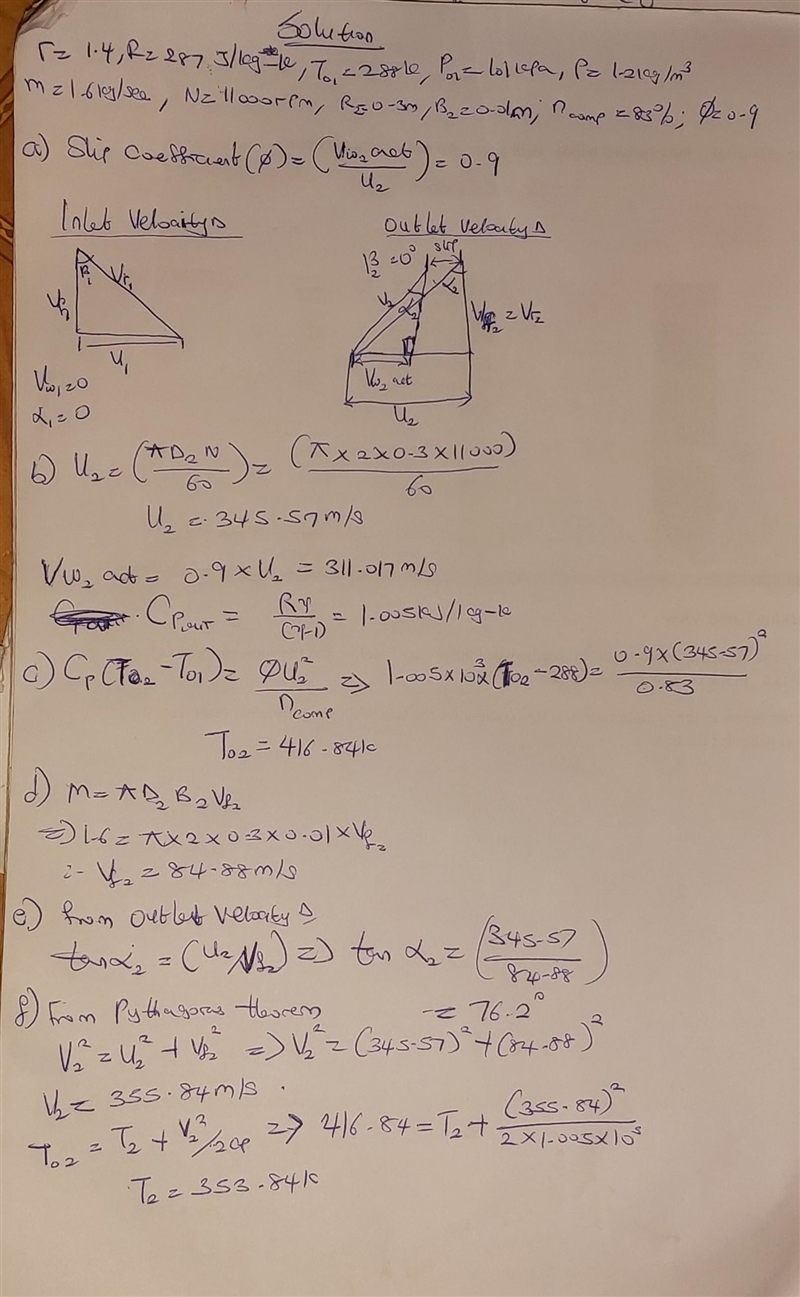 Solution
r = 1.4, R = 287 J/kg-k, T01 = 288k, P01 = 101kpa, P = 1.2kg/m³
m = 1.6kg/sec, N = 11000rpm, R2 = 0.3m, B2 = 0.01m, ηcomp = 83%; ϕ = 0.9
a) Slip coefficient (ϕ) = (Vw2 act / U2) = 0.9
Inlet Velocity Δ
Outlet Velocity Δ
slip
β2 = 0°
β1
Vr1
Vf1
U1
V2
α2
α2
Vf2 = Vr2
Vw2 act
U2
Vw1 = 0
α1 = 0
b) U2 = (πD2N / 60) = (π × 2 × 0.3 × 11000) / 60
U2 = 345.57m/s
Vw2 act = 0.9 × U2 = 311.017m/s
CP,air = Rγ / (γ-1) = 1.005kJ/kg-k
c) Cp(T02 - T01) = ϕU2² / ηcomp => 1.005 × 10³ × (T02 - 288) = 0.9 × (345.57)² / 0.83
T02 = 416.84k
d) m = πD2 B2 Vf2
=> 1.6 = π × 2 × 0.3 × 0.01 × Vf2
∴ Vf2 = 84.88m/s
e) from outlet velocity Δ
tan α2 = (U2/Vf2) => tan α2 = (345.57 / 84.88)
= 76.2°
f) From Pythagorus theorem
V2² = U2² + Vf2² => V2² = (345.57)² + (84.88)²
V2 = 355.84m/s.
T02 = T2 + V2²/2cp => 416.84 = T2 + (355.84)² / 2 × 1.005 × 10³
T2 = 353.84k